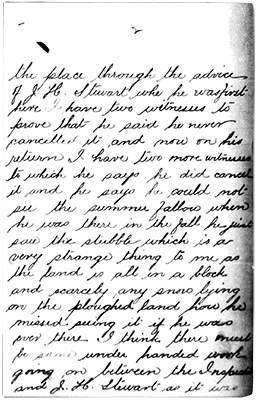 2
the place through the advice
of J. H. Stewart whe he was first
here I have two witnesses to
prove that he said he never
cancelled it and now on his
return I have two more witnesses
to which he says he did cancel
it and he says he could not
see the summer fallow when
he was there in the fall he just
saw the stubble which is a
very strange thing to me as
the land is all in a block
and scarcely any snow lying
on the ploughed land how he
missed seeing it if he was
over there I think there must
be some under handed work
going on between the Inspector
and J. H. Stewart as it was